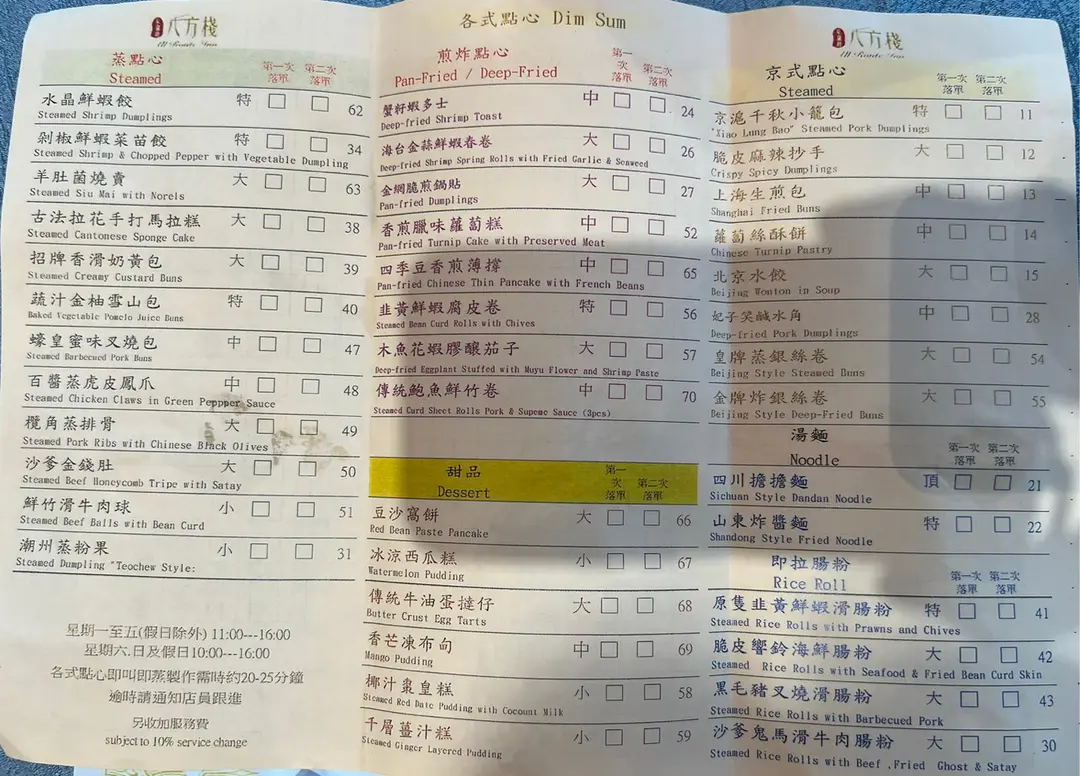 八方棧
All Roads Inn
蒸點心
Steamed
第一次落單 第二次落單
水晶鮮蝦餃 特 62
Steamed Shrimp Dumplings
剁椒鮮蝦菜苗餃 特 34
Steamed Shrimp & Chopped Pepper with Vegetable Dumpling
羊肚菌燒賣 大 63
Steamed Siu Mai with Norels
古法拉花手打馬拉糕 大 38
Steamed Cantonese Sponge Cake
招牌香滑奶黃包 大 39
Steamed Creamy Custard Buns
蔬汁金柚雪山包 特 40
Baked Vegetable Pomelo Juice Buns
蠔皇蜜味叉燒包 中 47
Steamed Barbecued Pork Buns
百醬蒸虎皮鳳爪 中 48
Steamed Chicken Claws in Green Peppper Sauce
欖角蒸排骨 大 49
Steamed Pork Ribs with Chinese Black Olives
沙爹金錢肚 大 50
Steamed Beef Honeycomb Tripe with Satay
鮮竹滑牛肉球 小 51
Steamed Beef Balls with Bean Curd
潮州蒸粉果 小 31
Steamed Dumpling "Teochew Style:
星期一至五(假日除外) 11:00---16:00
星期六.日及假日10:00---16:00
各式點心即叫即蒸製作需時約20-25分鐘
逾時請通知店員跟進
另收加服務費
subject to 10% service change
各式點心 Dim Sum
煎炸點心
Pan-Fried / Deep-Fried
第一次落單 第二次落單
蟹籽蝦多士 中 24
Deep-fried Shrimp Toast
海台金蒜鮮蝦春卷 大 26
Deep-fried Shrimp Spring Rolls with Fried Garlic & Seaweed
金網脆煎鍋貼 大 27
Pan-fried Dumplings
香煎臘味蘿蔔糕 中 52
Pan-fried Turnip Cake with Preserved Meat
四季豆香煎薄撐 中 65
Pan-fried Chinese Thin Pancake with French Beans
韭黃鮮蝦腐皮卷 特 56
Steamed Bean Curd Rolls with Chives
木魚花蝦膠釀茄子 大 57
Deep-fried Eggplant Stuffed with Muyu Flower and Shrimp Paste
傳統鮑魚鮮竹卷 中 70
Steamed Curd Sheet Rolls Pork & Supeme Sauce (3pcs)
甜品
Dessert
第一次落單 第二次落單
豆沙窩餅 大 66
Red Bean Paste Pancake
冰涼西瓜糕 小 67
Watermelon Pudding
傳統牛油蛋撻仔 大 68
Butter Crust Egg Tarts
香芒凍布甸 中 69
Mango Pudding
椰汁棗皇糕 小 58
Steamed Red Date Pudding with Cocount Milk
千層薑汁糕 小 59
Steamed Ginger Layered Pudding
八方棧
All Roads Inn
京式點心
Steamed
第一次落單 第二次落單
京滬千秋小籠包 特 11
"Xiao Lung Bao" Steamed Pork Dumplings
脆皮麻辣抄手 大 12
Crispy Spicy Dumplings
上海生煎包 中 13
Shanghai Fried Buns
蘿蔔絲酥餅 中 14
Chinese Turnip Pastry
北京水餃 大 15
Beijing Wonton in Soup
妃子笑鹹水角 中 28
Deep-fried Pork Dumplings
皇牌蒸銀絲卷 大 54
Beijing Style Steamed Buns
金牌炸銀絲卷 大 55
Beijing Style Deep-Fried Buns
湯麵
Noodle
第一次落單 第二次落單
四川擔擔麵 頂 21
Sichuan Style Dandan Noodle
山東炸醬麵 特 22
Shandong Style Fried Noodle
即拉腸粉
Rice Roll
第一次落單 第二次落單
原隻韭黃鮮蝦滑腸粉 特 41
Steamed Rice Rolls with Prawns and Chives
脆皮響鈴海鮮腸粉 大 42
Steamed Rice Rolls with Seafood & Fried Bean Curd Skin
黑毛豬叉燒滑腸粉 大 43
Steamed Rice Rolls with Barbecued Pork
沙爹鬼馬滑牛肉腸粉 大 30
Steamed Rice Rolls with Beef ,Fried Ghost & Satay